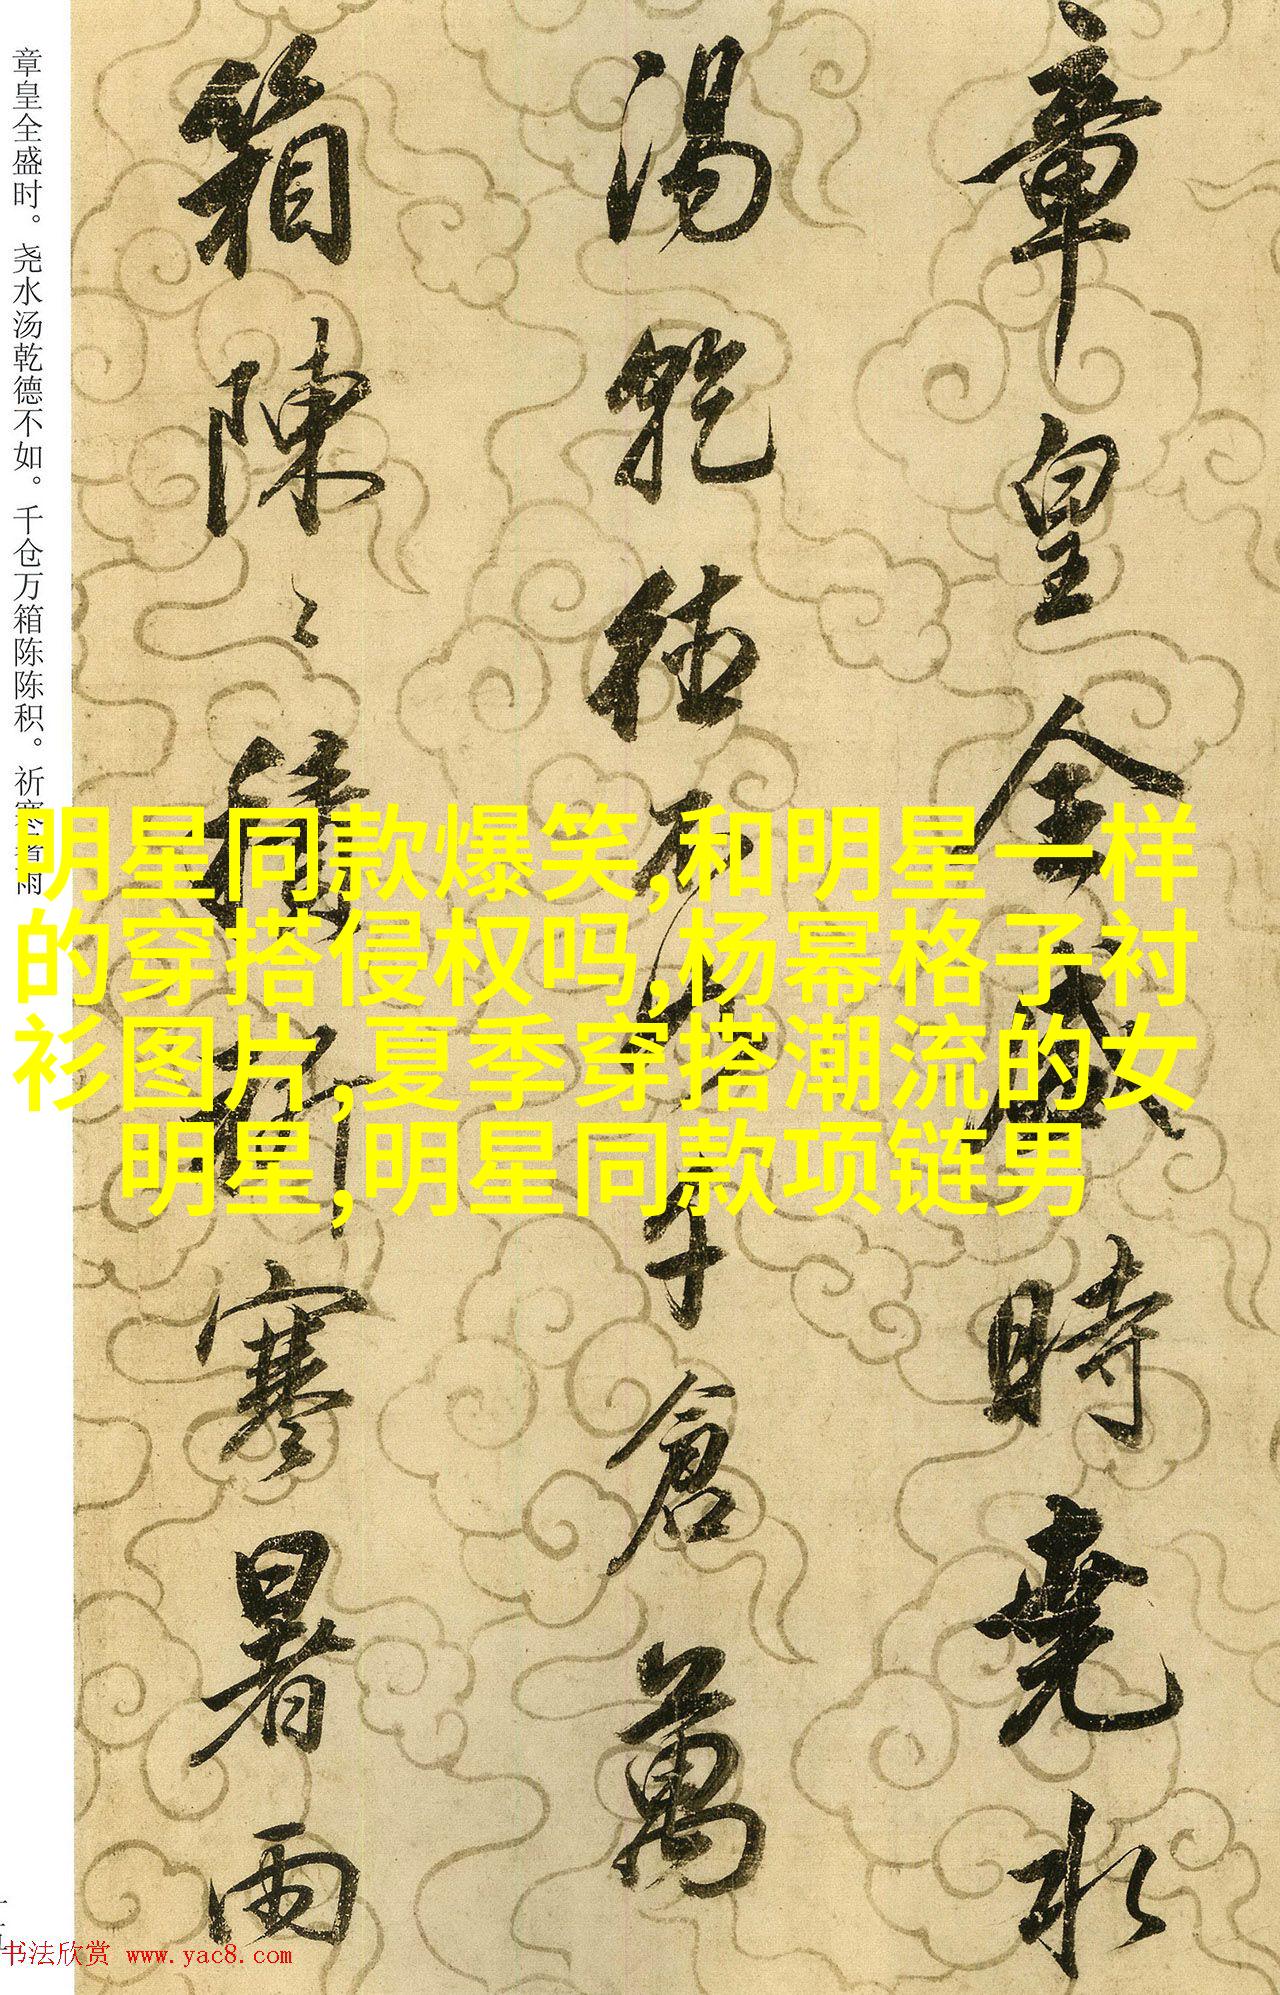 章皇全盛時堯水
湯乾德不如千倉萬
箱陳〻積祈寒暑雨
章皇全盛时。尧水汤乾德不如。千仓万箱陈陈积。祈寒暑雨
明星同款爆笑,和明星一样
的穿搭侵权吗,杨幂格子衬
衫图片,夏季穿搭潮流的女
明星,明星同款项链男
书法欣赏 www.yac8.com